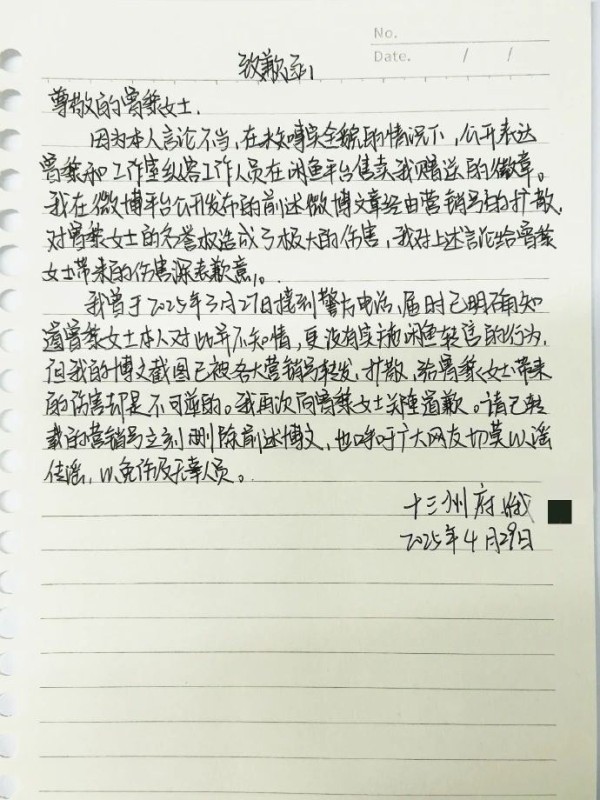 No.
Date. / /
致歉函
尊敬的曾黎女士.
因为本人言论不当,在未核实全貌的情况下,公开表达
曾黎和工作室纵容工作人员在闲鱼平台售卖我赠送的徽章。
我在微博平台公开发布的前述微博文章经由营销号的扩散,
对曾黎女士的名誉权造成了极大的伤害,我对上述言论给曾黎
女士带来的伤害深表歉意。
我曾于2025年3月27日接到警方电话,届时已明确知
道曾黎女士本人对此并不知情,更没有实施闲鱼转售的行为,
但我的博文截图已被各大营销号转发、扩散,给曾黎女士带来
的伤害却是不可逆的。我再次向曾黎女士郑重道歉。请已转
载的营销号立刻删除前述博文,也呼吁广大网友切莫以谣
传谣,以免伤及无辜人员。
十三州府
2025年4月29日